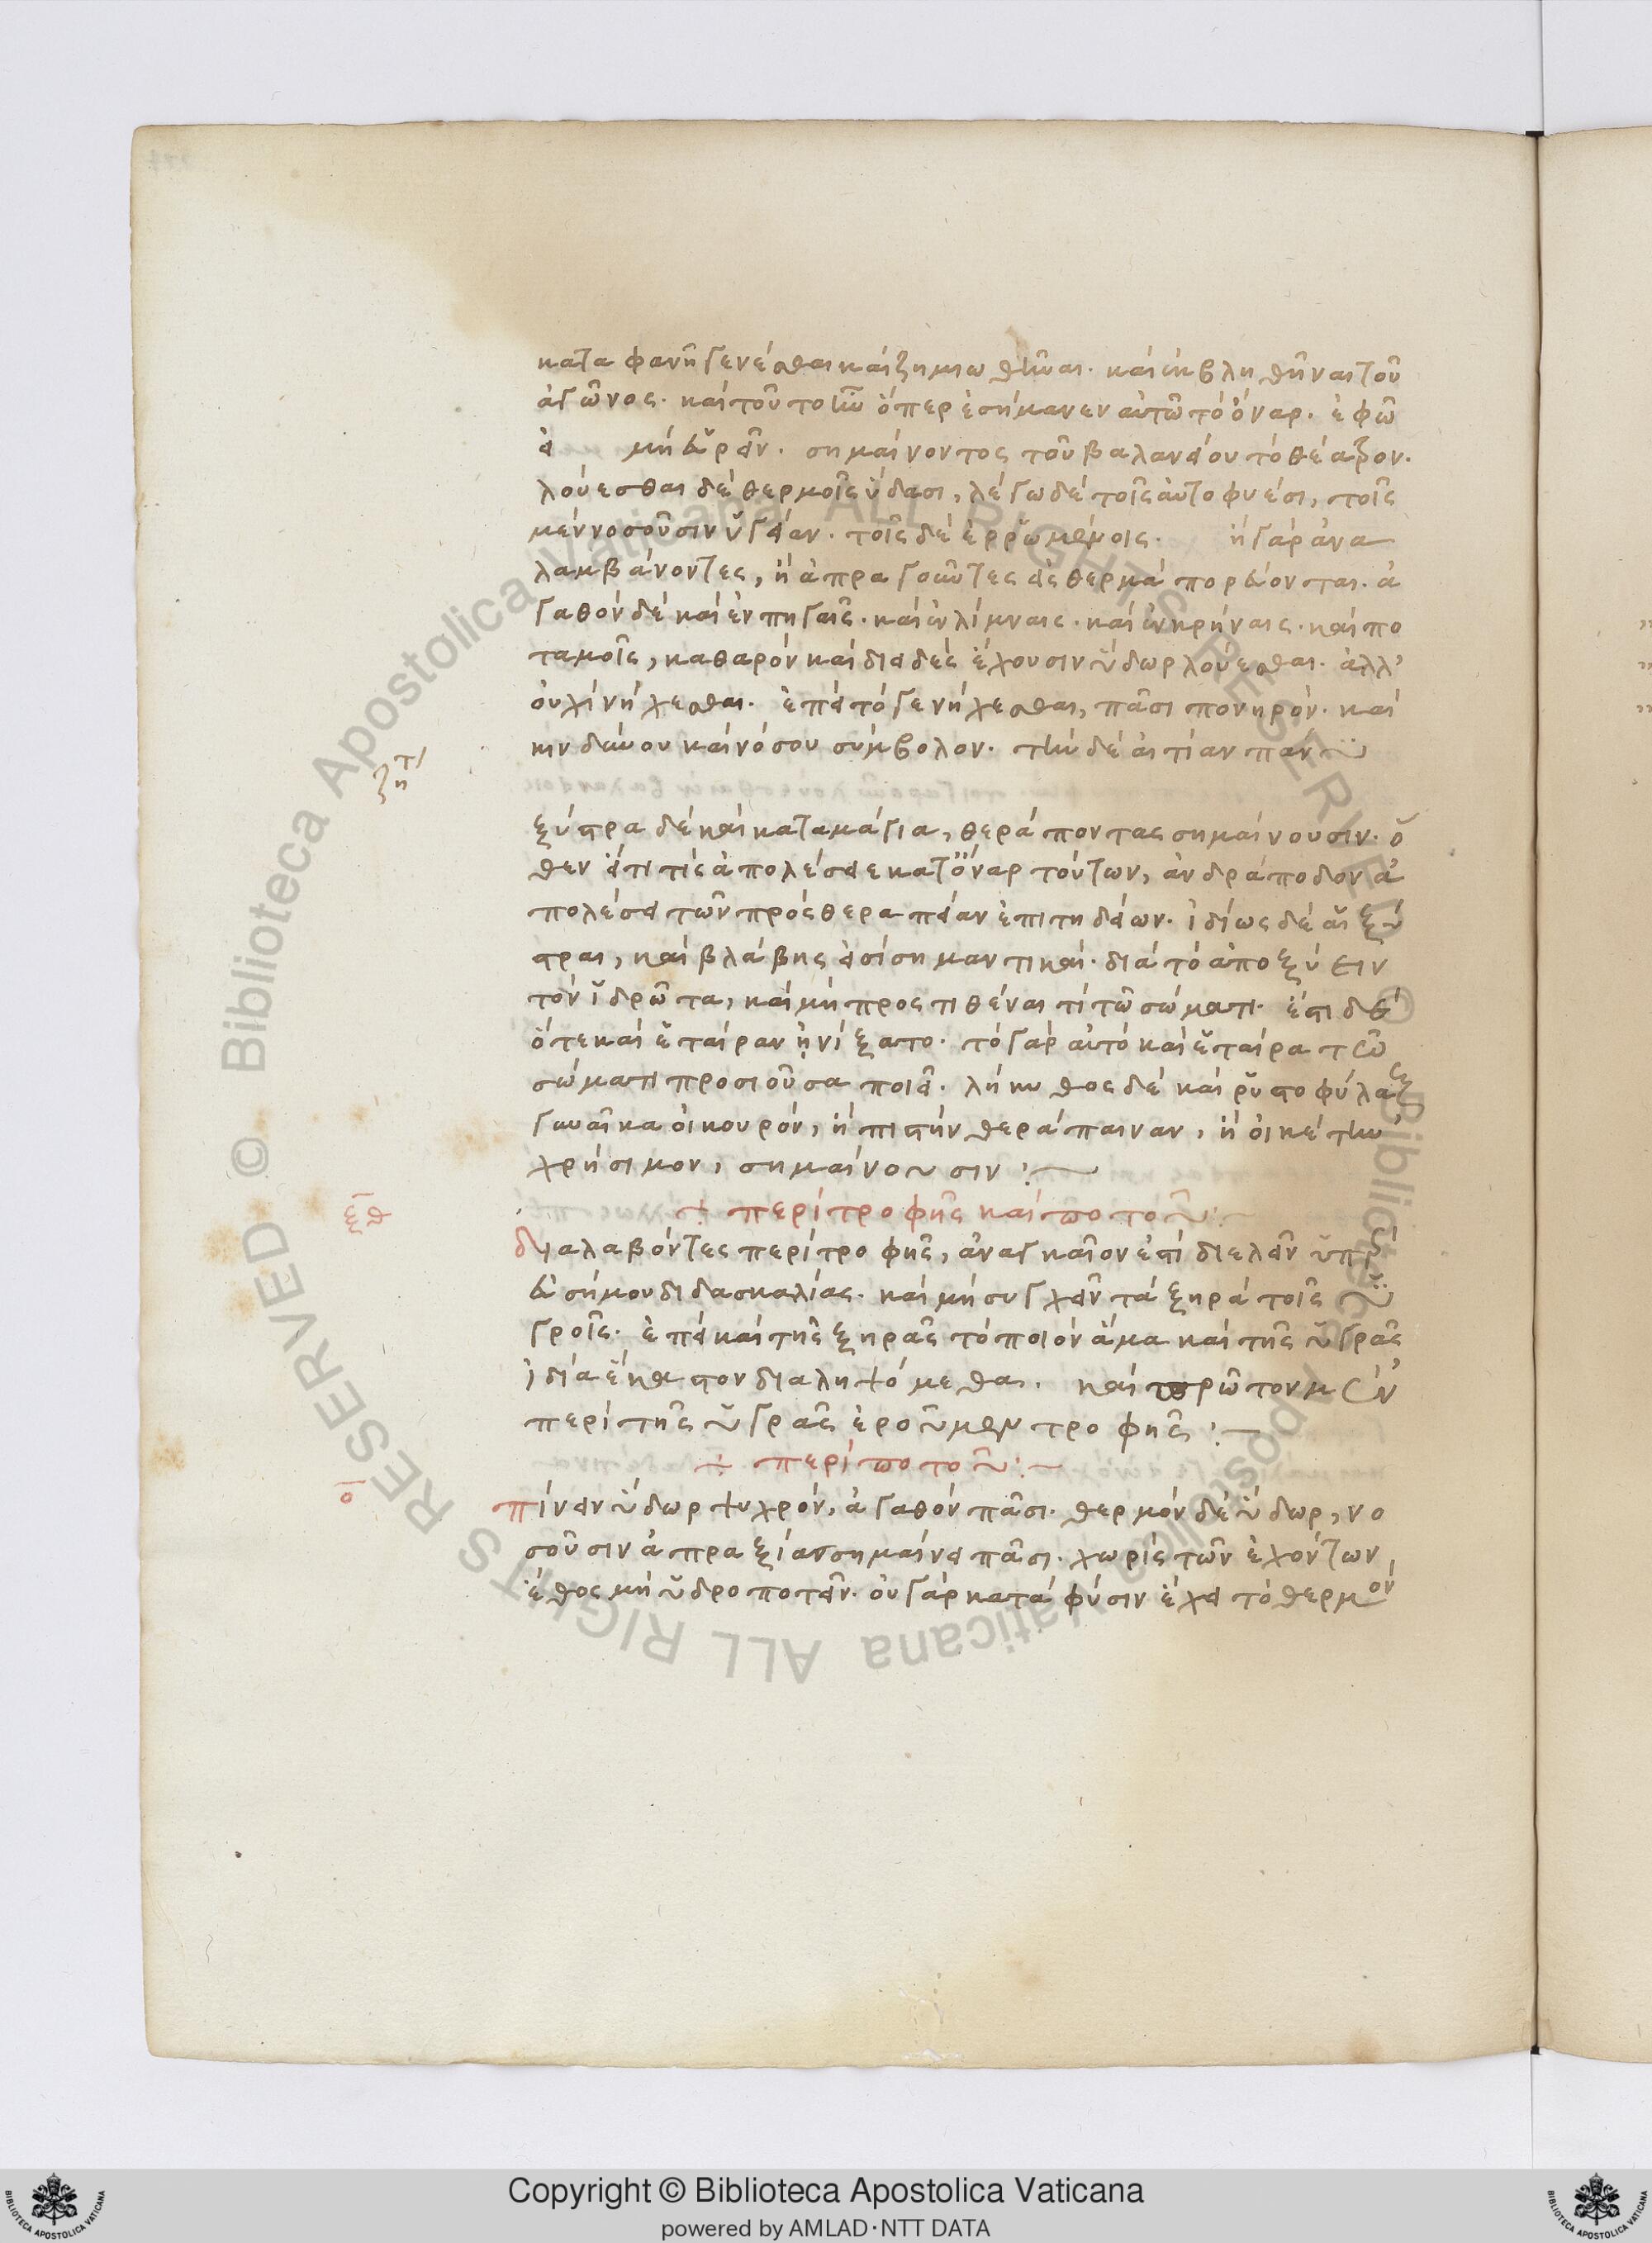 καταφανῆ γενέσθαι καὶ ζημιωθῆναι. καὶ ἐκβληθῆναι τοῦ
ἀγῶνος. καὶ τοῦτο ἦν ὅπερ ἐσήμανεν αὐτῶ τὸ ὄναρ. ἐφ ῶ
εἰ μὴ εὑρεῖν. σημαίνοντος τοῦ βαλανείου τὸ θέατρον.
λούεσθαι δὲ θερμοῖς ὕδασι, λέγω δὲ τοῖς αὐτοφυέσι, τοῖς
μὲν νοσοῦσιν ὑγείαν. τοῖς δὲ ἐρρωμένοις. ἢ γὰρ ἀνα
λαμβάνοντες, ἢ ἀπραγοῦντες εἰς θερμὰ πορεύονται. ἀ
γαθὸν δὲ καὶ ἐν πηγαῖς. καὶ ἐν λίμναις. καὶ ἐν κρήναις. καὶ πο
ταμοῖς, καθαρὸν καὶ διειδὲς ἔχουσιν ὕδωρ λούεσθαι. ἀλλ'
οὐχὶ νήχεσθαι. ἐπεὶ τό γε νήχεσθαι, πᾶσι πονηρόν. καὶ
κινδύνου καὶ νόσου σύμβολον. τὴν δὲ αἰτίαν παν
ζητ
ξύστρα δὲ καὶ καταμάγια, θεράποντας σημαίνουσιν. ὅ
θεν εἴ τι τὶς ἀπολέσειε κατ' ὄναρ τούτων, ἀνδράποδον ἀ
πολέσει τῶν πρὸς θεραπείαν ἐπιτηδείων. ἰδίως δὲ αἱ ξύ
στραι, καὶ βλάβης εἰσὶ σημαντικαί. διὰ τὸ ἀποξύειν
τὸν ἱδρῶτα, καὶ μὴ προστιθέναι τὶ τῶ σώματι. ἔστι δὲ
ὅτε καὶ ἑταίραν ἠνίξατο. τὸ γὰρ αὐτὸ καὶ ἑταίρα τῶ
σώματι προσιοῦσα ποιεῖ. λήκυθος δὲ καὶ ῥυστοφύλαξ
γυναῖκα οἰκουρόν, ἢ πιστὴν θεράπαιναν, ἢ οἰκέτην
χρήσιμον, σημαίνουσιν :~
ξθ
+ περὶ τροφῆς καὶ ποτοῦ :~
διαλαβόντες περὶ τροφῆς, ἀναγκαῖον ἐστὶ διελεῖν ὑπὲρ
εὐσήμου διδασκαλίας. καὶ μὴ συγχεῖν τὰ ξηρὰ τοῖς ὑ
γροῖς. ἐπεὶ καὶ τῆς ξηρᾶς τὸ ποιὸν ἅμα καὶ τῆς ὑγρᾶς
ἰδία ἕκαστον διαληψόμεθαι. καὶ πρῶτον μὲν
περὶ τῆς ὑγρᾶς ἐροῦμεν τροφῆς :~
ο
+ περὶ ποτοῦ :~
πίνειν ὕδωρ ψυχρόν, ἀγαθὸν πᾶσι. θερμὸν δὲ ὕδωρ, νο
σοῦσιν ἀπραξίαν σημαίνει πᾶσι. χωρὶς τῶν ἐχόντων
ἔθος μὴ ὑδροποτεῖν. οὐ γὰρ κατὰ φύσιν ἔχει τὸ θερμὸν
Biblioteca Apostolica Vaticana ALL RIGHTS RESERVED ©
Copyright © Biblioteca Apostolica Vaticana
powered by AMLAD·NTT DATA